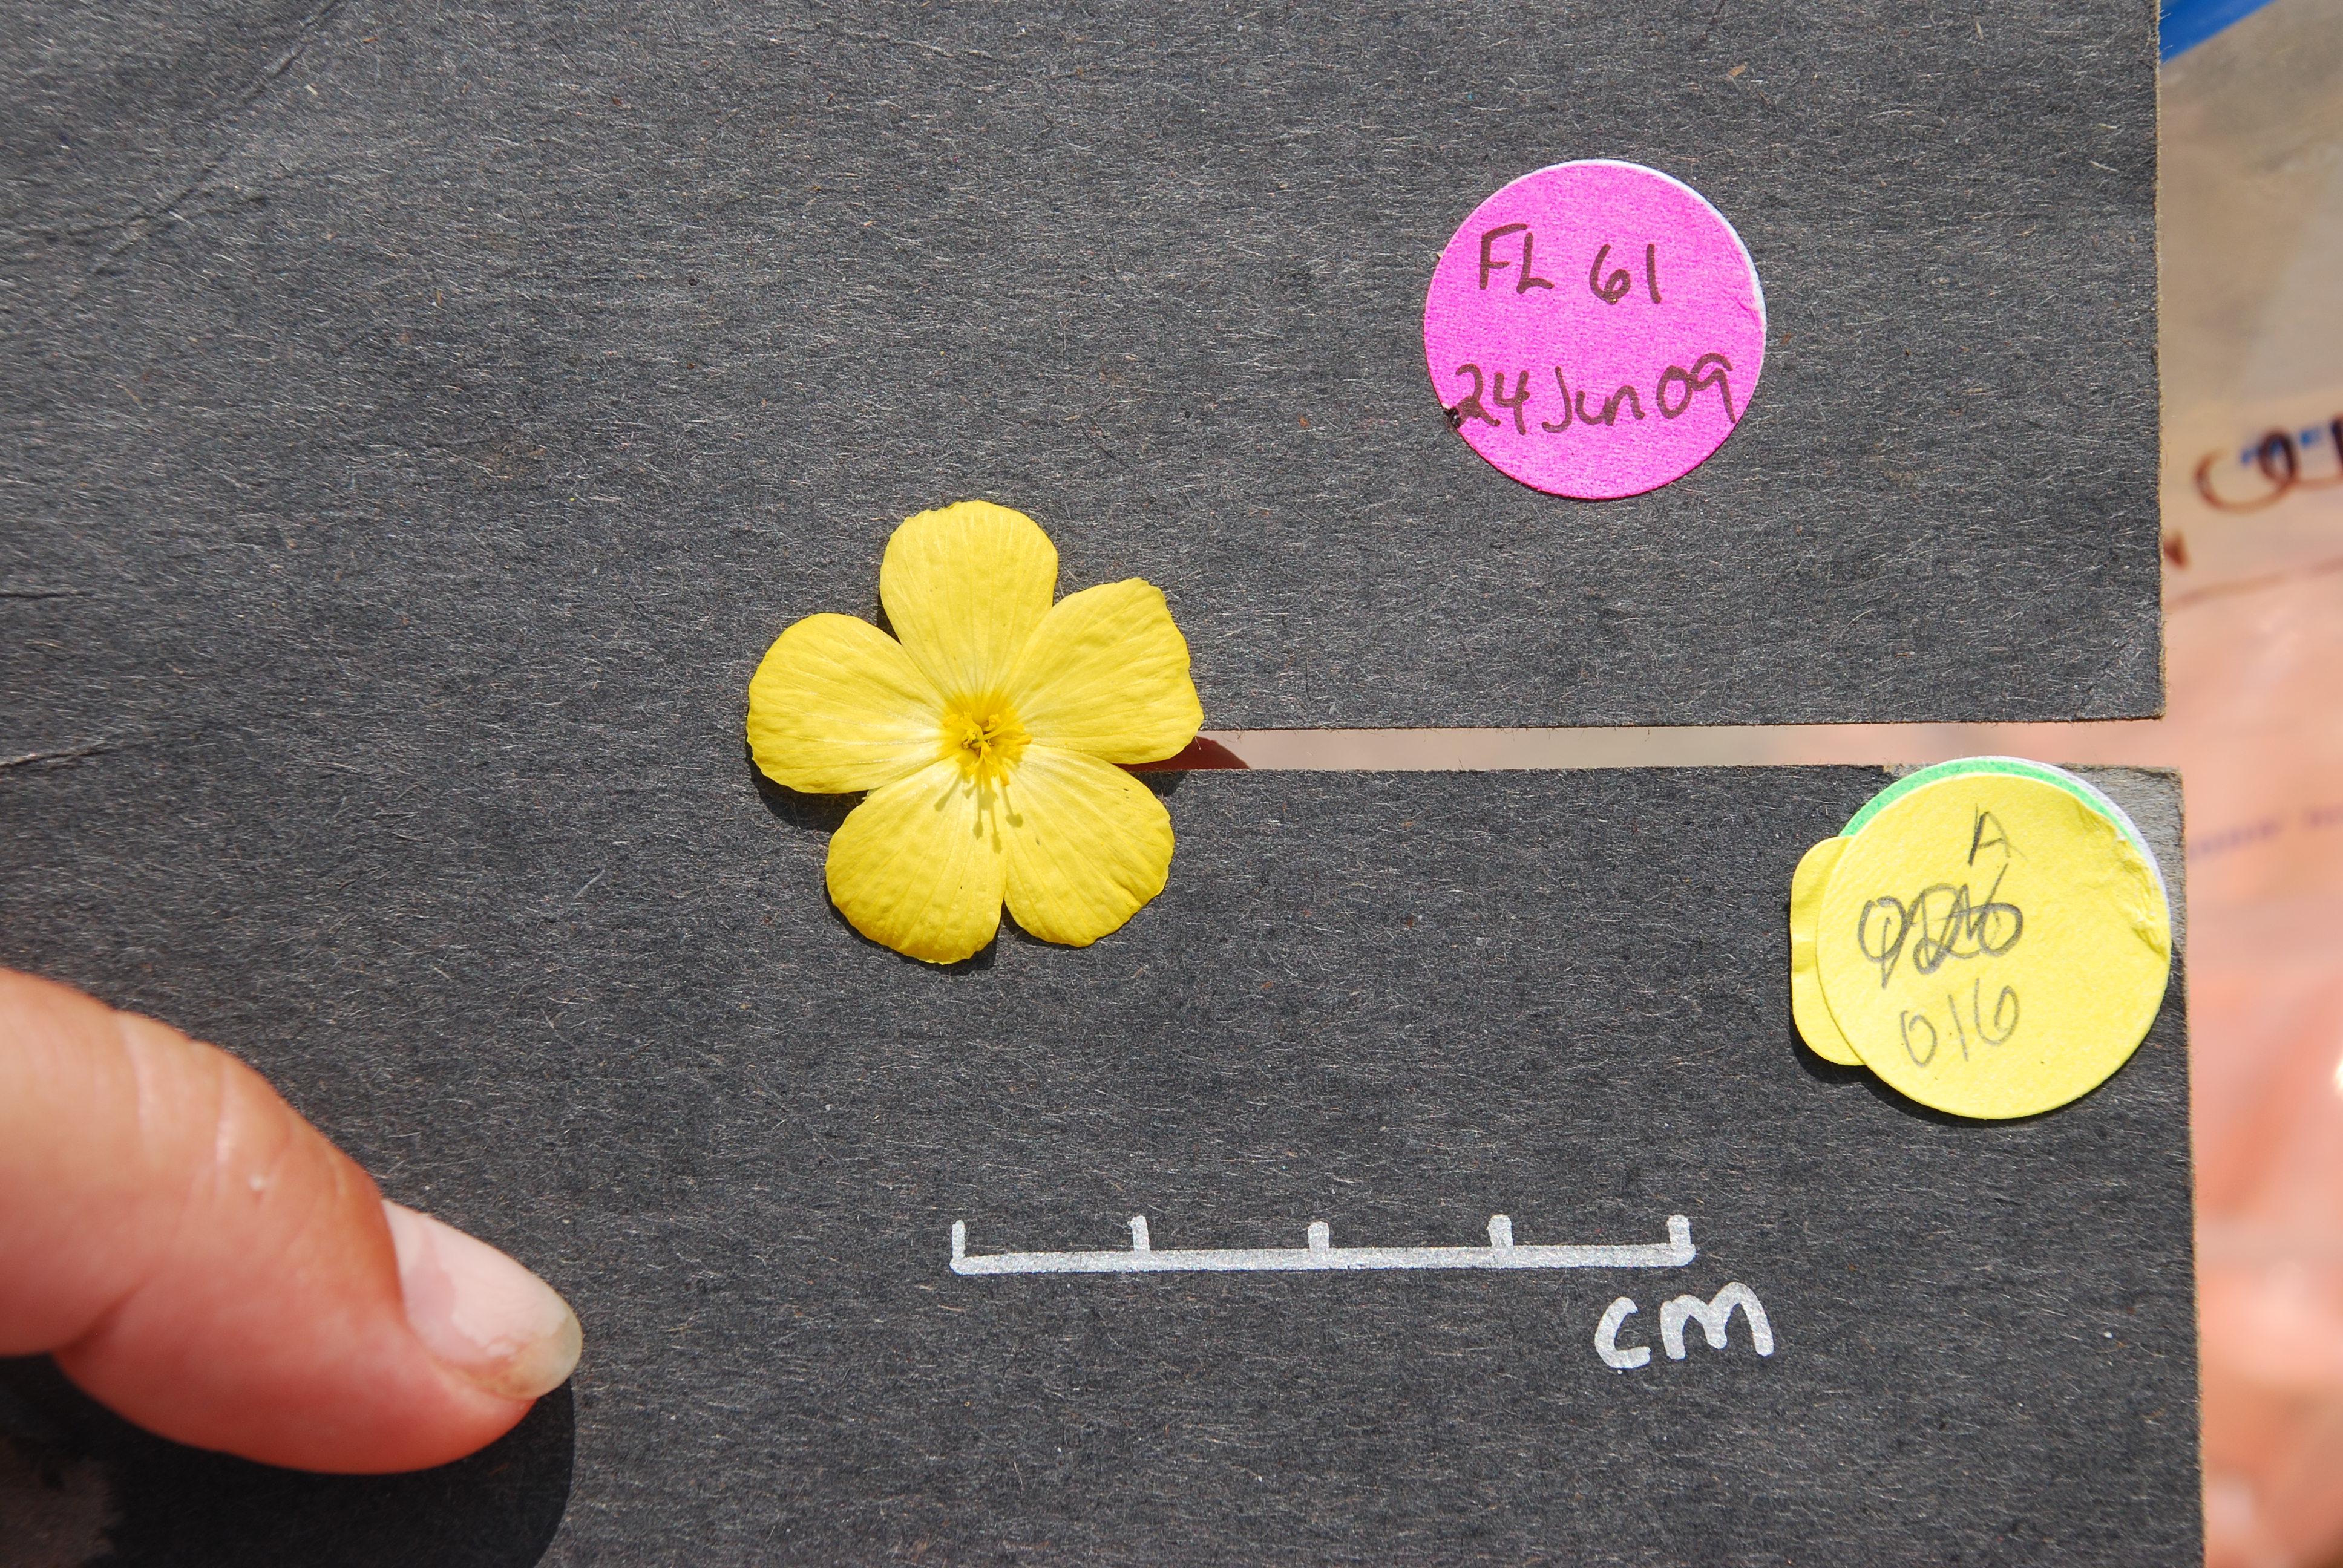 FL 61
24 Jun 09
A
016
cm